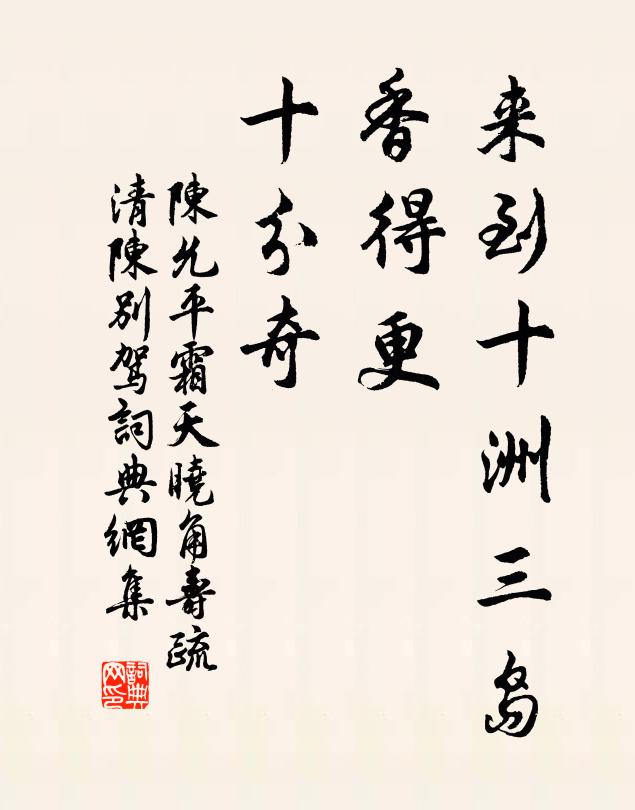 来到十洲三岛
香得更
十分奇
陳允平霜天曉角壽疏
清陳别駕詞典網集
詞典
网印